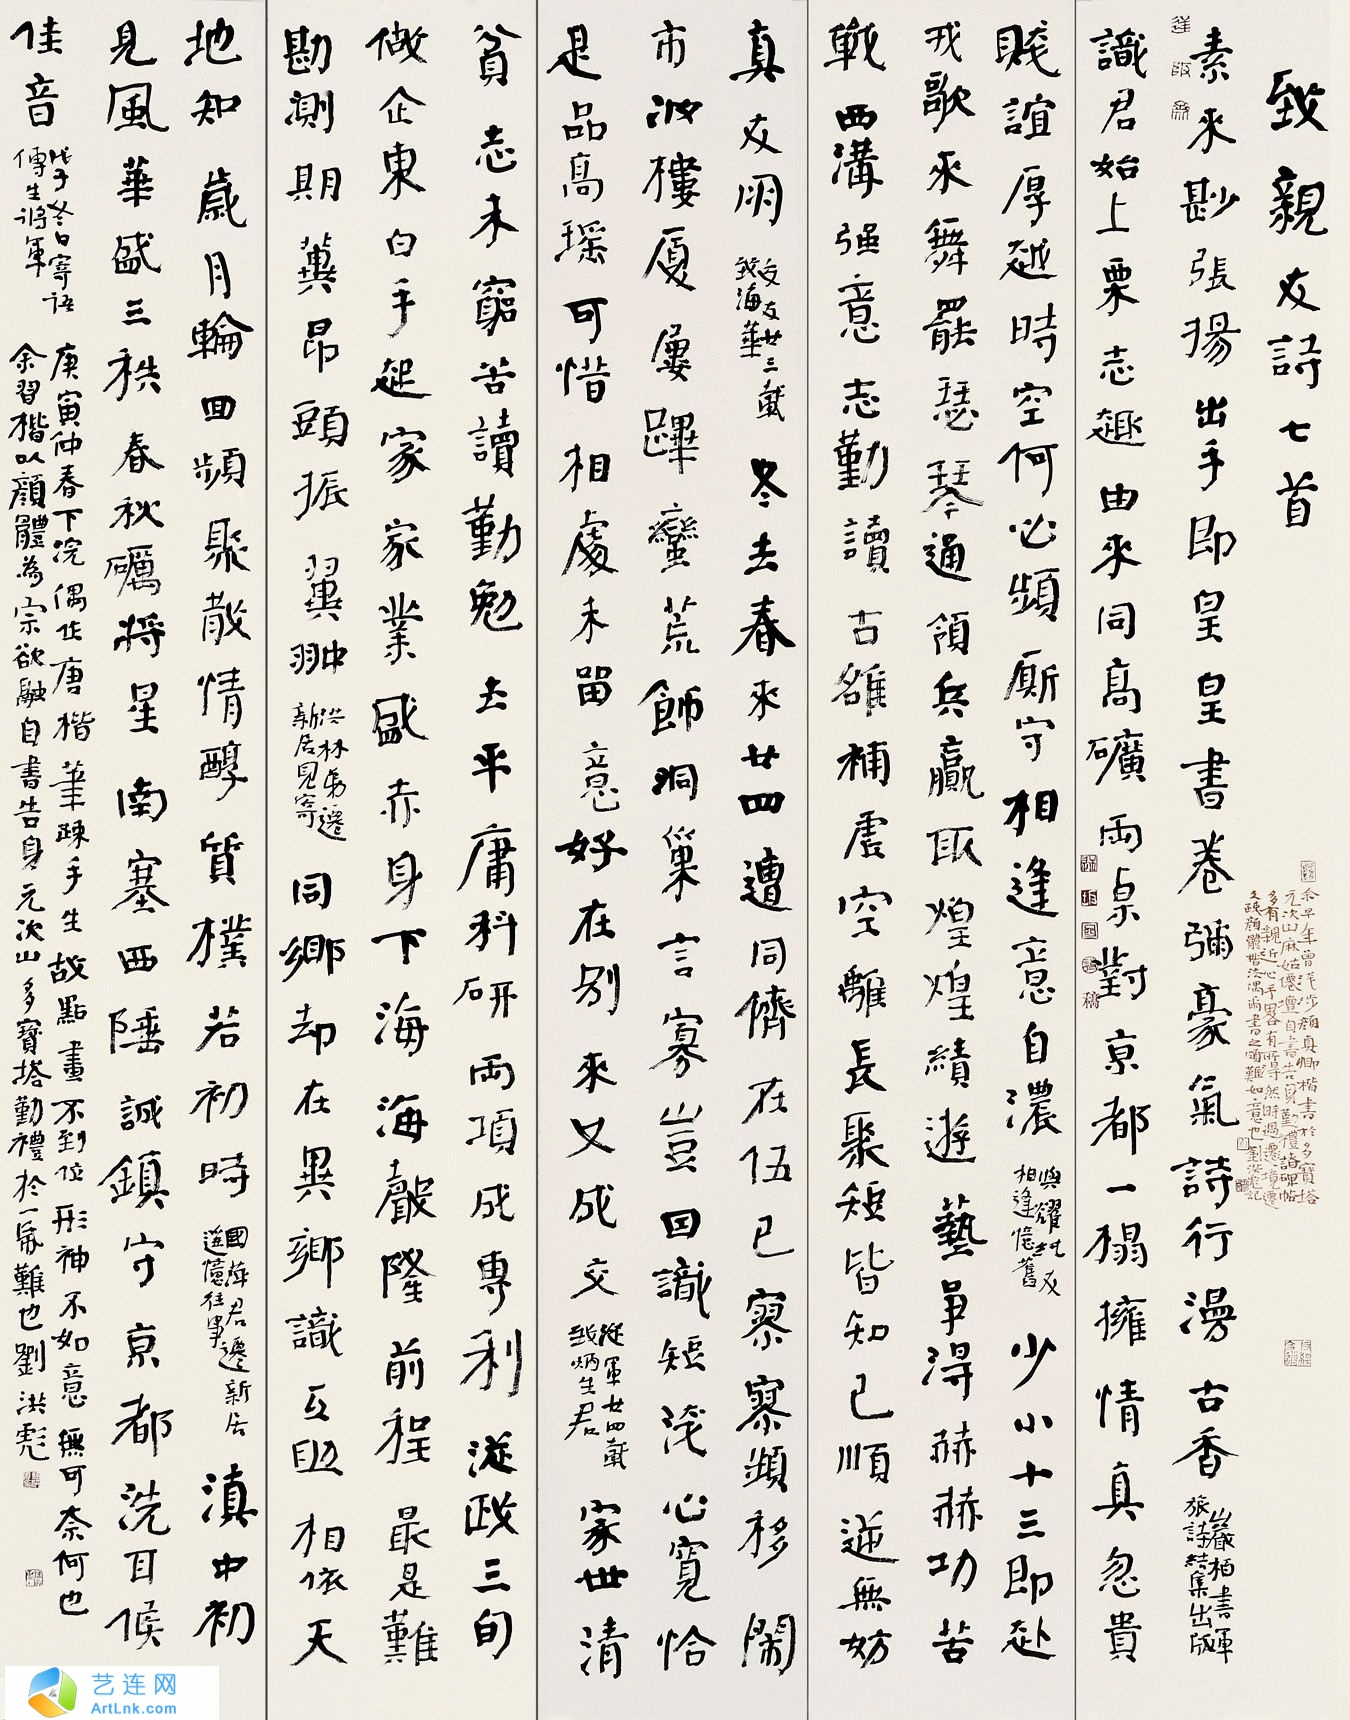 致親友詩七首
素來尠張揚出手即皇皇書卷彌豪氣詩行漫古香
巖栢書暉
旅詩結集出版
識君始上栗志趣由來同高礦兩桌對京都一榻擁情真忽貴
賤誼厚越時空何必頻廝守相逢意自濃
與耀
相逢憶舊
少小十三即赴
戎歌來舞罷瑟琴通領兵贏取煌煌績遊藝爭得赫赫功苦
戰西溝强意志勤讀古雒補虛空離長聚短皆知己順逆無妨
真友朋
交友廿三載
致海華
冬去春來廿四遭同儕在伍已寥寥頻移鬧
市波樓厦屢蹕蠻荒飾洞巢言寡豈因識短淺心寬恰
是品高瑶可惜相處未留意好在別來又成交
從軍廿四載
致炳生君
家世清
貧志未窮苦讀勤勉去平庸科研兩項成專利從政三旬
做企東白手起家家業盛赤身下海海聲隆前程最是難
勘測期冀昂頭振翼翀
洪林弟遷
新居見寄
同鄉却在異鄉識互助相依天
地知歲月輪回頻聚散情醇質樸若初時
國輝君遷新居
遥憶往事
滇中初
見風華盛三秩春秋礪將星南塞西陲誠鎮守京都洗耳候
佳音
戊子冬日寄語
傳生將軍
庚寅仲春下浣偶作唐楷筆疎手生故點畫不到位形神不如意無可奈何也
余習楷以顔體為宗欲融自書告身元次山多寶塔勤禮於一爲難也劉洪彪
余早年曾涉顔真卿楷書於多寶塔
元次山麻姑僊壇自書告身勤禮諸碑帖
多有親近心手畧有所得然時過遷境遷
久疎顔體楷法偶爾書之頗難如意也劉洪彪記
艺连网
ArtLnk.com